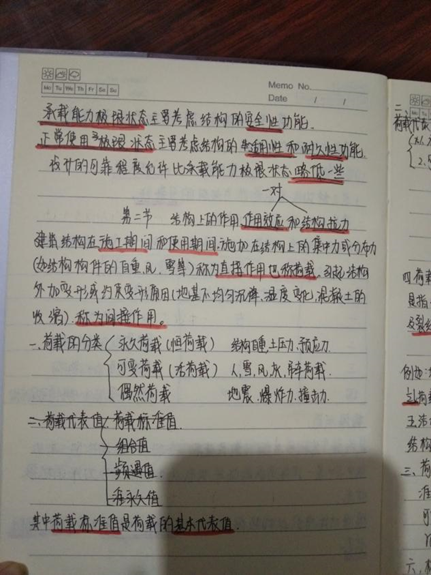 Memo No.
Mo Tu We Th Fr Sa Su
Date / /
承载能力极限状态主要考虑结构的安全性功能.
正常使用极限状态主要考虑结构的适用性和耐久性功能.
设计的可靠程度允许比承载能力极限状态略低一些
一对
第二节 结构上的作用,作用效应和结构抗力
建筑结构在施工期间和使用期间,施加在结构上的集中力或分布力
(如结构构件的自重,风,雪等)称为直接作用也称荷载.引起结构
外加变形或约束变形原因(地基不均匀沉降,温度变化,混凝土的
收缩).称为间接作用.
一.荷载的分类 永久荷载(恒荷载) 结构自重土压力.预应力.
可变荷载(活荷载) 人,雪,风,灰,吊车荷载
偶然荷载 地震.爆炸力.撞击力.
二.荷载代表值 荷载标准值.
组合值
频遇值.
准永久值
其中荷载标准值是荷载的基本代表值.
荷载代表
四.荷载
具指
例如:
结构
三.荷
准
可
六.